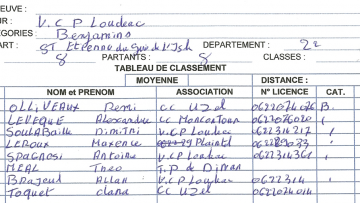 EUVE :
UR : V.C P Loudeac
ÉGORIES : Benjamins
ART : ST Etienne du Gué de l'Isle DÉPARTEMENT : 22
8 PARTANTS : 8 CLASSES :
TABLEAU DE CLASSEMENT
MOYENNE DISTANCE :
NOM et PRENOM ASSOCIATION N° LICENCE CAT.
OLLIVEAUX Remi CC UZel B.
LEVEQUE Alexandre CC Moncontour 0622076020 /
SOULABAILLE Dimitri V.C P Loudeac 0622314217 /
LEROUX Maxence Plaintel /
SPAGNOSI Antoine V.C P Loudeac 0622314361 /
MEAL Theo T.P de Dinan
BRAJEUL Allan V.C P Loudeac 0622314 /
Toquet clara CC UZel 0622076014